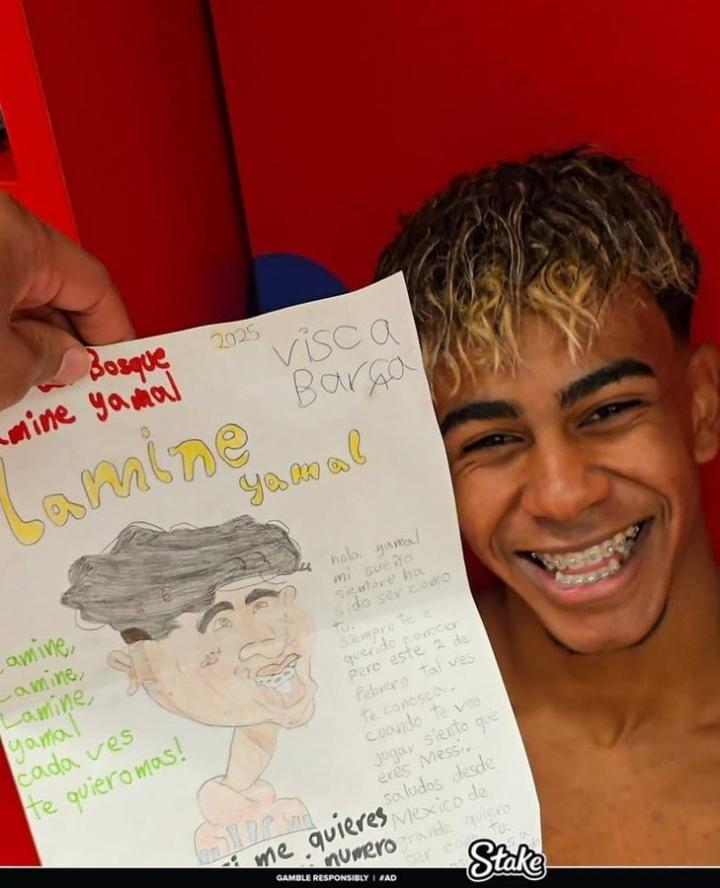 Bosque
amine yamal
2025
visca
Barça
Lamine
yamal
hola yamal
mi sueño
siempre ha
sido ser como
tu.
siempre te e
querido conocer
pero este 2 de
febrero tal ves
te conosca.
cuando te veo
jugar siento que
eres Messi.
saludos desde
Mexico de
grande quiero
ser como tu.
amine,
Lamine,
Lamine,
yamal
cada ves
te quiero mas!
si me quieres
numero
Stake
GAMBLE RESPONSIBLY | #AD